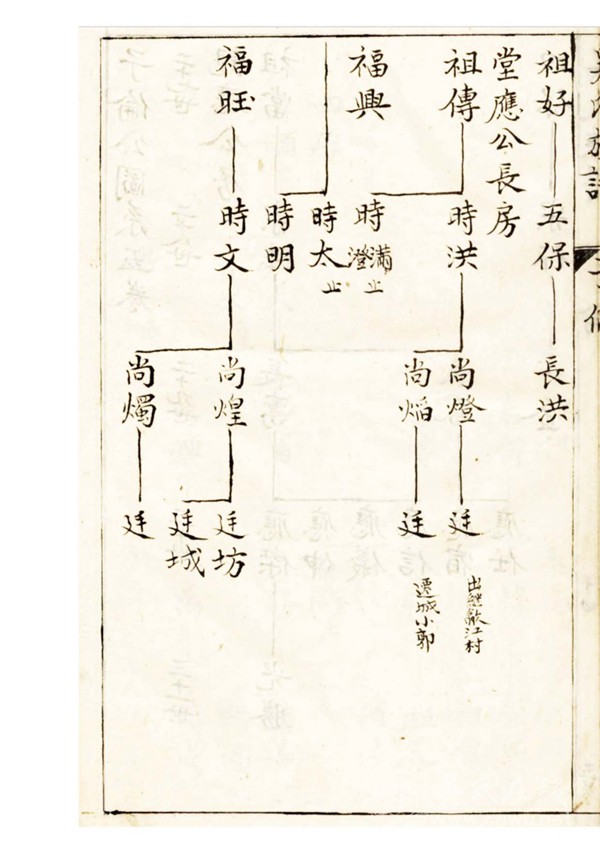 祖好
五保
長洪
堂應公長房
祖傳
時洪
尚燈
廷
出繼歙江村
尚焰
廷
遷城小郭
福興
時澄
滿止
時太止
時明
福旺
時文
尚煌
廷坊
廷城
尚燭
廷